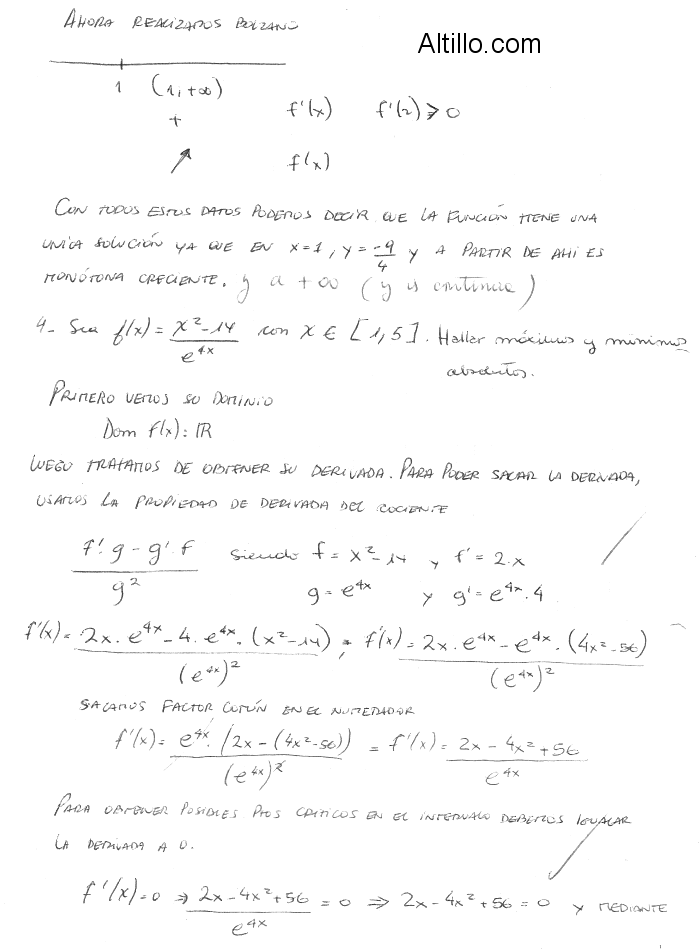 AHORA REALIZAMOS BOLZANO
Altillo.com
1 (1, +∞)
+ f'(x) f'(2) > 0
f(x)
CON TODOS ESTOS DATOS PODEMOS DECIR QUE LA FUNCIÓN TIENE UNA
UNICA SOLUCIÓN YA QUE EN x=1, y = -9/4 Y A PARTIR DE AHI ES
MONÓTONA CRECIENTE. y a +∞ (y es continua)
4- Sea f(x) = x²-14/e^4x con x ∈ [1,5]. Hallar máximos y mínimos
absolutos.
PRIMERO VEMOS SU DOMINIO
Dom f(x): ℝ
LUEGO TRATAMOS DE OBTENER SU DERIVADA. PARA PODER SACAR LA DERIVADA,
USAMOS LA PROPIEDAD DE DERIVADA DEL COCIENTE
f'.g - g'.f/g² siendo f = x²-14 y f' = 2.x
g = e^4x y g' = e^4x.4
f'(x) = 2x.e^4x - 4.e^4x.(x²-14)/(e^4x)² ; f'(x) = 2x.e^4x - e^4x.(4x²-56)/(e^4x)²
SACAMOS FACTOR COMÚN EN EL NUMERADOR
f'(x) = e^4x.(2x-(4x²-56))/(e^4x)² = f'(x) = 2x-4x²+56/e^4x
PARA OBTENER POSIBLES PTOS CRITICOS EN EL INTERVALO DEBEMOS IGUALAR
LA DERIVADA A 0.
f'(x)=0 ⇒ 2x-4x²+56/e^4x = 0 ⇒ 2x-4x²+56=0 Y MEDIANTE